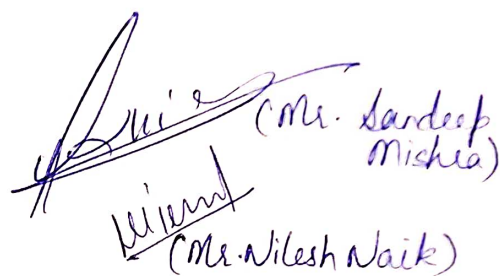 (Mr. Sandeep
Mishra)
(Mr. Nilesh Naik)